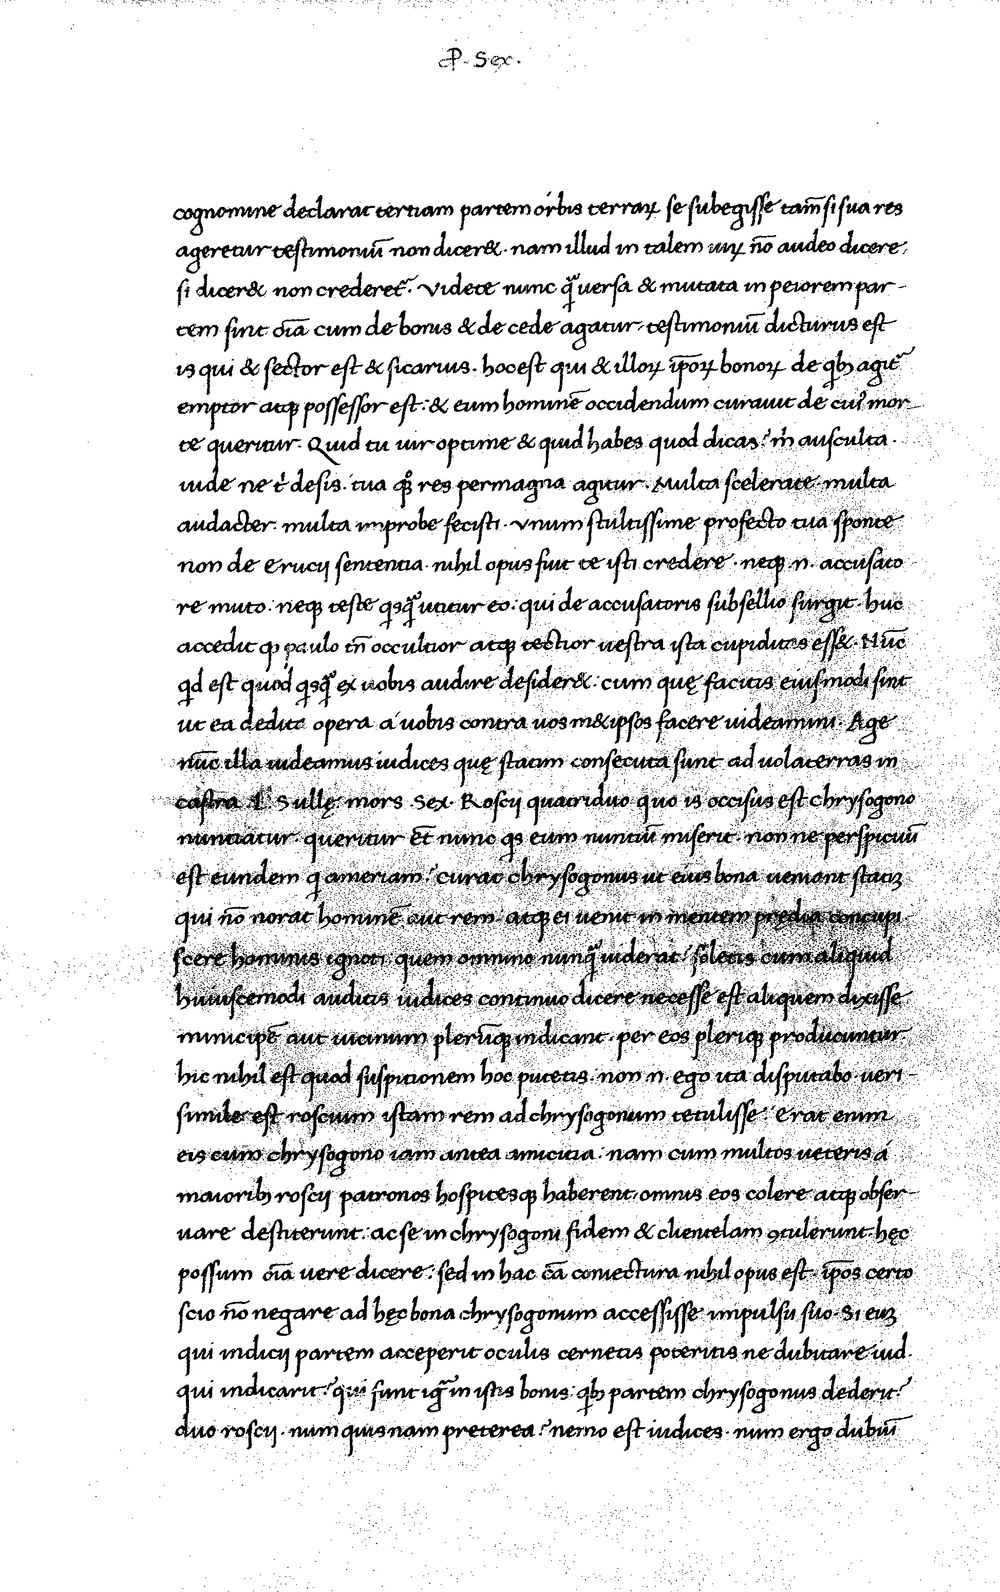 P. Sex.
cognomine declarat tertiam partem orbis terraꝝ se subegisse tam̄ si sua res
ageretur testimoniū non dicer&. nam illud in talem uiꝝ nō audeo dicere,
si dicer& non crederet᷑. Videte nunc qͣ̄ uersa & mutata in peiorem par-
tem sint oīa cum de bonis & de cede agatur, testimoniū dicturus est
is qui & sector est & sicarius. hoc est qui & illoꝝ ip̄oꝝ bonoꝝ de qbꝫ agit᷑
emptor atqꝫ possessor est: & eum hominē occidendum curauit de cuiꝰ mor-
te queritur. Quid tu uir optime & quid habes quod dicas? ṁ ausculta.
uide ne t̓ desis. tua qꝫ res permagna agitur. Multa scelerate. multa
audacter. multa improbe fecisti. Vnum stultissime profecto tua sponte
non de Erucij sententia. nihil opus fuit te isti credere. neqꝫ .n. accusato
re muto. neqꝫ teste qsqͣ̄ utitur eo: qui de accusatoris subsellio surgit. huc
accedit ꝙ paulo tn̄ occultior atqꝫ tectior uestra ista cupiditas ess&. Nūc
qd est quod qsqͣ̄ ex uobis audire desider&: cum quę facitis eiusmodi sint
ut ea dedita opera á uobis contra uosm&ipsos facere uideamini. Age
nūc illa uideamus iudices quę statim consecuta sunt ad uolaterras in
castra L. Sullę. mors Sex. Roscij quatriduo quo is occisus est chrysogono
nuntiatur. queritur Et̄ nunc qs eum nuntiū miserit. non ne perspicuū
est eundem q ameriam? curat chrysogonus ut eius bona ueniant statiꝫ
qui nō norat hominē aut rem. atqꝫ ei uenit in mentem prędia concupi
scere hominis ignoti. quem omnino nunqͣ̄ uiderat? soletis cum aliquid
huiuscemodi auditis iudices continuo dicere necesse est aliquem dixisse
municipē aut uicinum plerūqꝫ indicant. per eos pleriqꝫ producuntur.
hic nihil est quod suspitionem hoc putetis. non .n. ego ita disputabo ueri-
simile est roscium istam rem ad chrysogonum tetulisse. Erat enim
eis cum chrysogono iam antea amicitia: nam cum multos ueteris á
maioribꝫ roscij patronos hospitesqꝫ haberent, omnis eos colere atqꝫ obser-
uare destiterunt: ac se in chrysogoni fidem & clientelam ꝯtulerunt. hęc
possum oīa uere dicere: sed in hac cā coniectura nihil opus est. ip̄os certo
scio nō negare ad hęc bona chrysogonum accessisse impulsu suo. Si euꝫ
qui indicij partem acceperit oculis cernetis poteritis ne dubitare iud.
qui indicarit? qui sunt igͣ̄ in istis bonis: qbꝫ partem chrysogonus dederit?
duo roscij. num quisnam preterea? nemo est iudices. num ergo dubiū